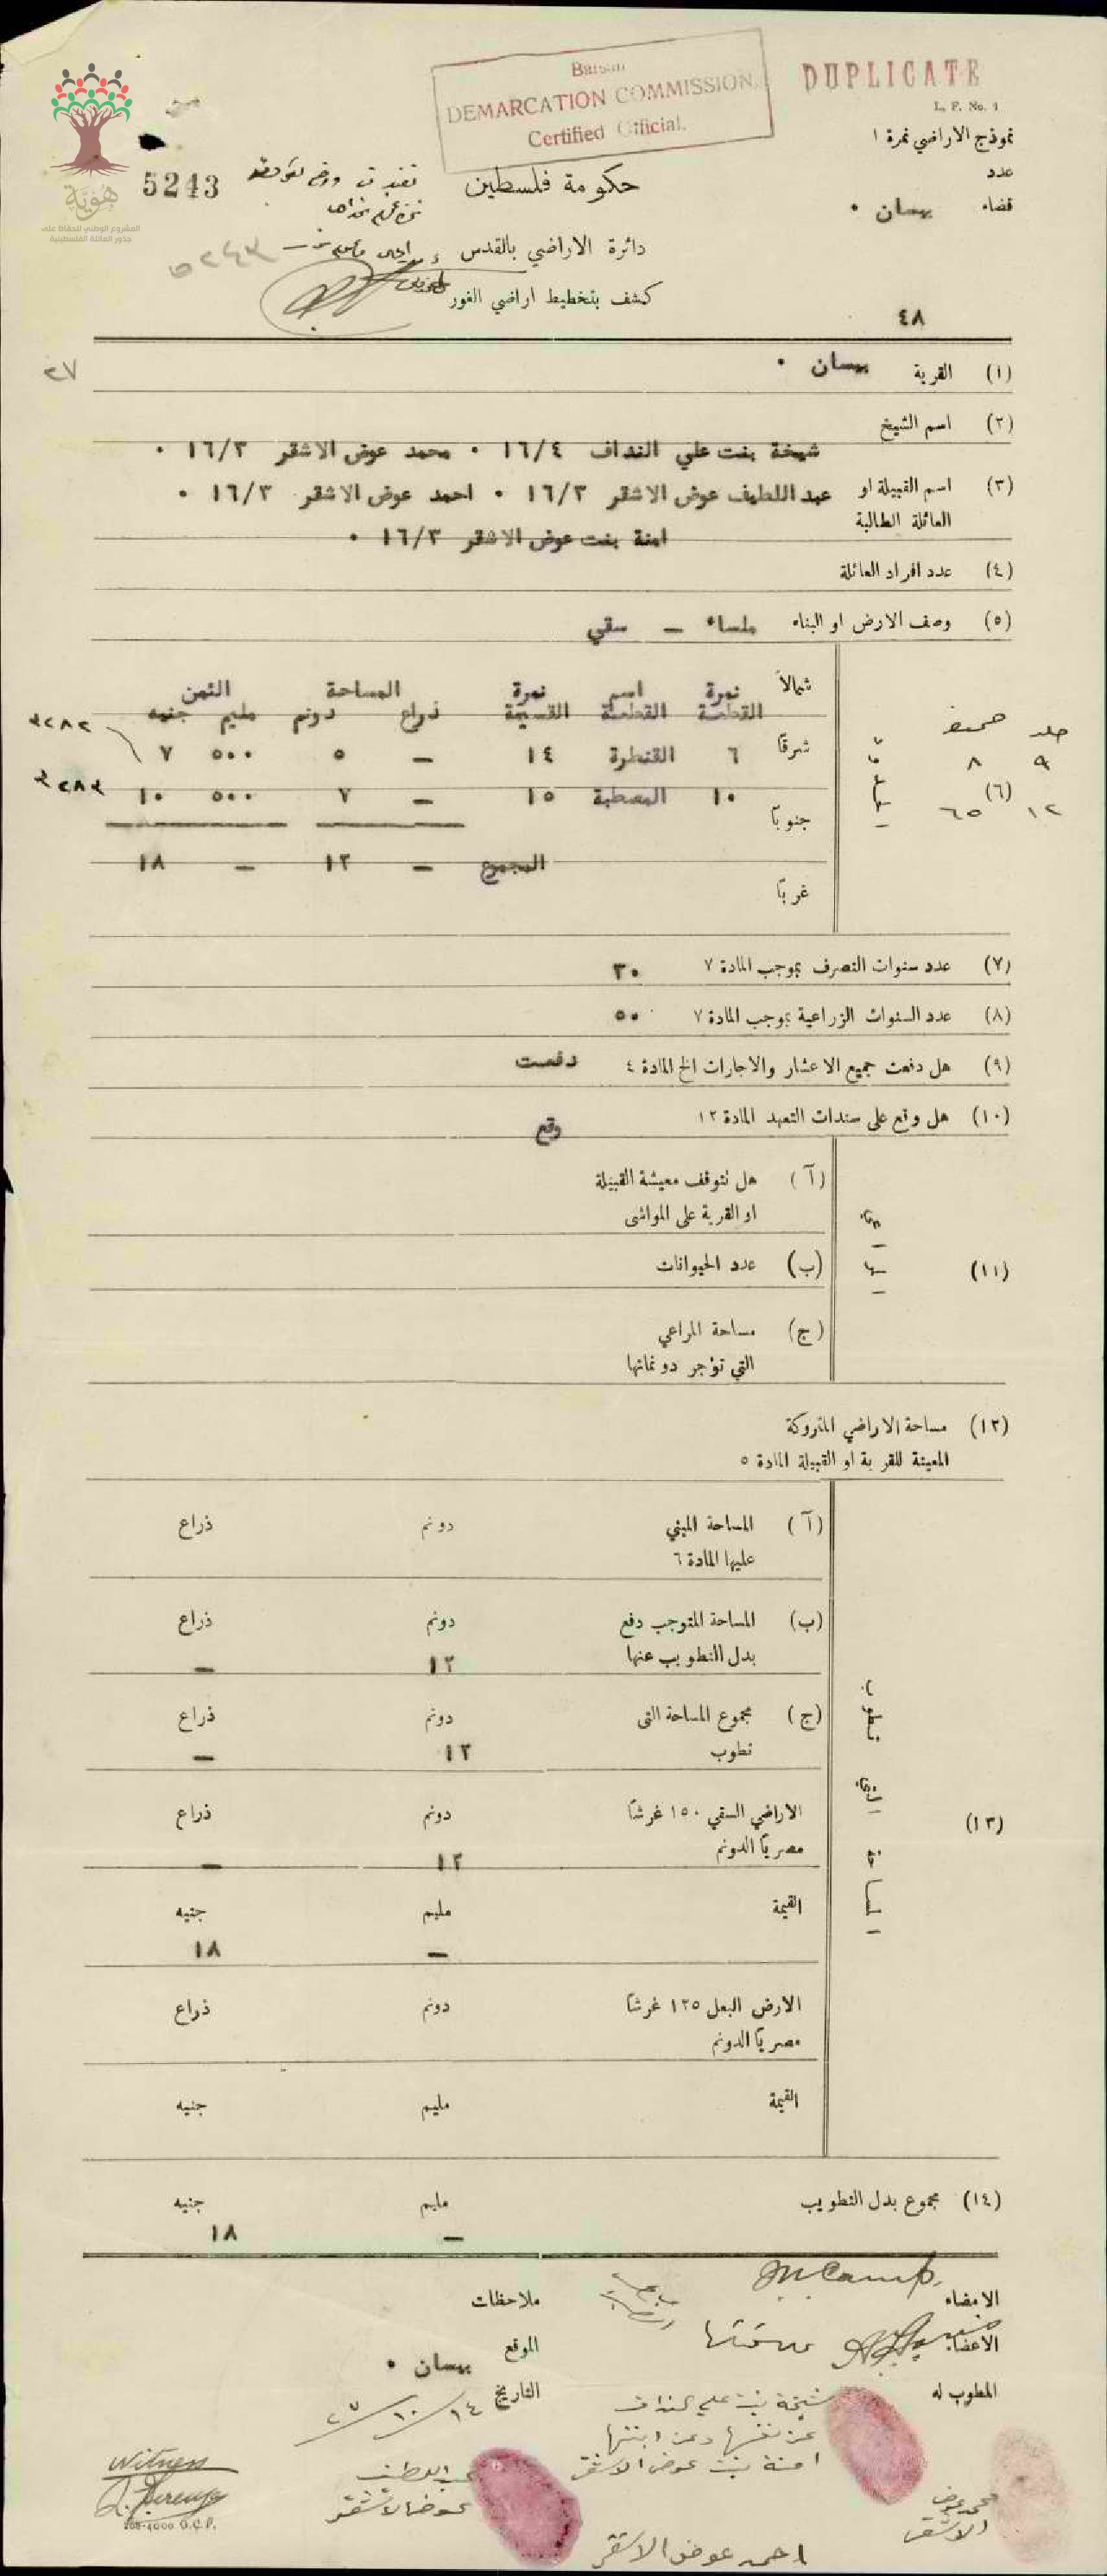 Baisan
DEMARCATION COMMISSION.
Certified Official.
DUPLICATE
L. F. No. 1
نموذج الاراضي نمرة ١
عدد
قضاء بيسان •
هوية
المشروع الوطني للحفاظ على
جذور العائلة الفلسطينية
5243
حكومة فلسطين
٥٢٤٣
دائرة الاراضي بالقدس
كشف بتخطيط اراضي الغور
٤٨
٢٧
(١) القرية بيسان •
(٢) اسم الشيخ
شيخة بنت علي النداف ١٦/٤ • محمد عوض الاشقر ١٦/٣ •
(٣) اسم القبيلة او العائلة الطالبة
عبد اللطيف عوض الاشقر ١٦/٣ • احمد عوض الاشقر ١٦/٣ •
امنة بنت عوض الاشقر ١٦/٣ •
(٤) عدد افراد العائلة
(٥) وصف الارض او البناء ملساء — سقي
(٦)
شمالاً
شرقاً
جنوباً
غرباً
نمرة القطعة اسم القطعة نمرة القسيمة المساحة ذراع دونم الثمن مليم جنيه
٦ القنطرة ١٤ — ٥ ٥٠٠ ٧
١٠ المصطبة ١٥ — ٧ ٥٠٠ ١٠
المجموع — ١٢ — ١٨
٣٢٨٢
٣٢٨٣
جلد
٩ ٨
١٢ ٦٥
(٧) عدد سنوات التصرف بموجب المادة ٧ ٣٠
(٨) عدد السنوات الزراعية بموجب المادة ٧ ٥٠
(٩) هل دفعت جميع الاعشار والاجارات الخ المادة ٤ دفعت
(١٠) هل وقع على سندات التعهد المادة ١٢ وقع
(١١)
(آ) هل تتوقف معيشة القبيلة
او القرية على المواشى
(ب) عدد الحيوانات
(ج) مساحة المراعي
التي تؤجر دونماتها
(١٢) مساحة الاراضي المتروكة
المعينة للقرية او القبيلة المادة ٥
(١٣) المساحة التي تطوب
(آ) المساحة المبني دونم ذراع
عليها المادة ٦
(ب) المساحة المتوجب دفع دونم ذراع
بدل التطويب عنها ١٢ —
(ج) مجموع المساحة التى دونم ذراع
تطوب ١٢ —
الاراضي السقي ١٥٠ غرشاً دونم ذراع
مصرياً الدونم ١٢ —
القيمة مليم جنيه
— ١٨
الارض البعل ١٢٥ غرشاً دونم ذراع
مصرياً الدونم
القيمة مليم جنيه
(١٤) مجموع بدل التطويب مليم جنيه
— ١٨
الامضاء M Camp.
ملاحظات
الاعضاء
الموقع بيسان •
التاريخ ١٤/١٠/٢٧
المطوب له
شيخة بنت علي النداف
عن نفسها وعن ابنتها
امنة بنت عوض الاشقر
عبد اللطيف
عوض الاشقر
محمد عوض
الاشقر
احمد عوض الاشقر
Witness